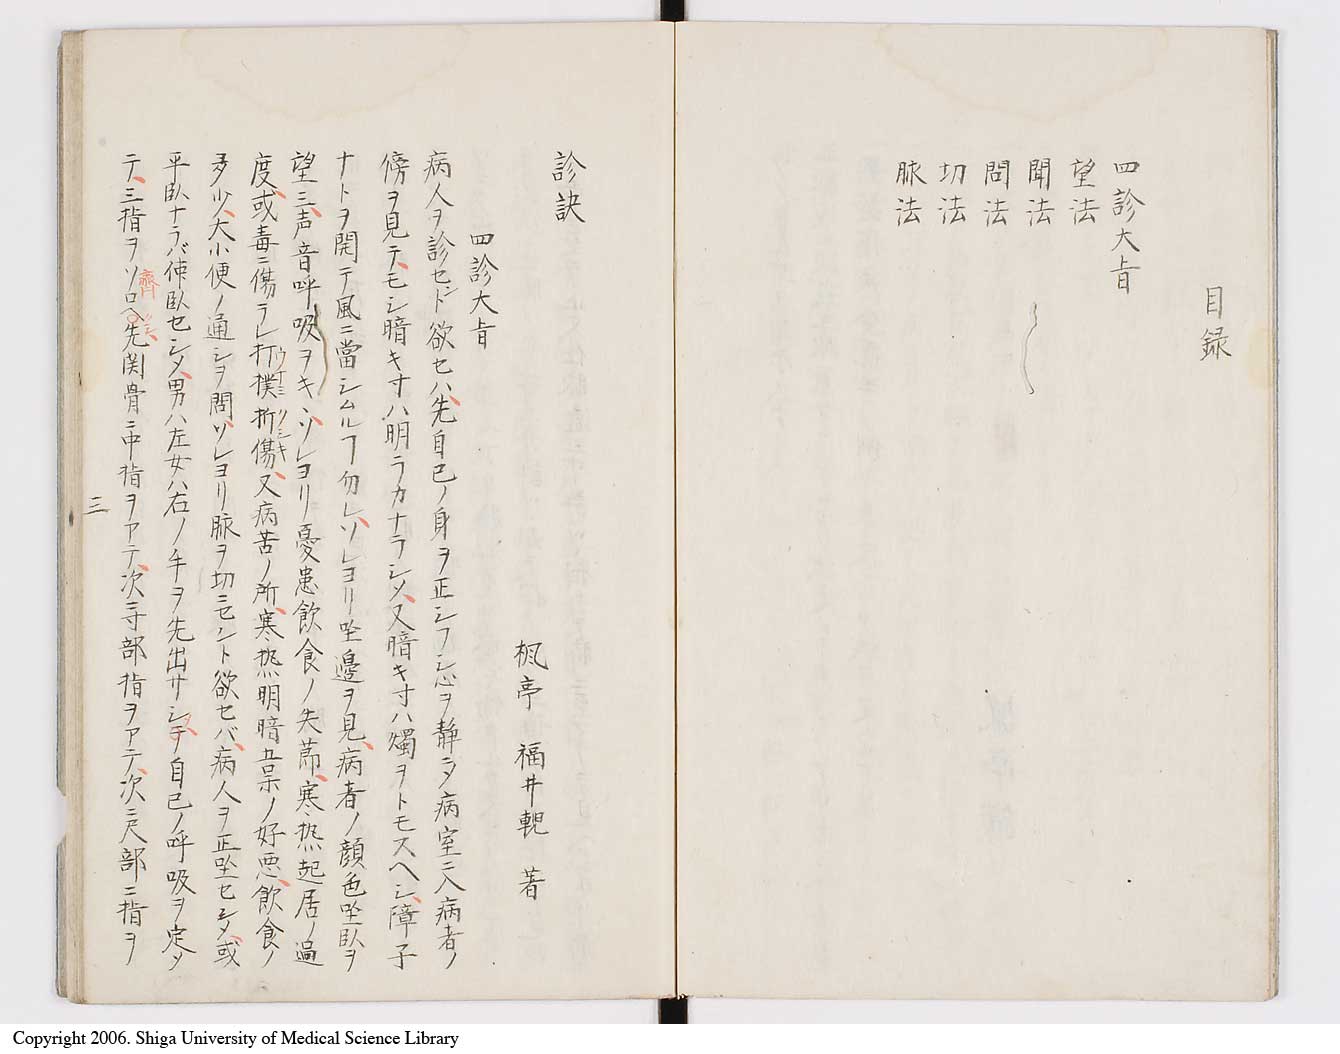 目録
四診大旨
望法
聞法
問法
切法
脈法
診訣
四診大旨
楓亭 福井輗 著
病人ヲ診セント欲セハ、先自己ノ身ヲ正シフシ心ヲ静ニシテ病室ニ入病者ノ
傍ヲ見テ、モシ暗キ寸ハ明ラカナラシメ、又暗キ寸ハ燭ヲトモスヘシ、障子
ナトヲ開テ風ニ當シムルヿ勿レ、ソレヨリ坐邉ヲ見、病者ノ顔色坐臥ヲ
望ミ、声音呼吸ヲキヽ、ソレヨリ憂患飲食ノ失節、寒熱起居ノ過
度、或毒ニ傷ラレ打撲折傷、又病苦ノ所、寒熱明暗喜呆ノ好悪、飲食ノ
多少、大小便ノ通シヲ問、ソレヨリ脈ヲ切ニセント欲セバ、病人ヲ正坐セシメ、或
平臥ナラバ使臥セシメ、男ハ左女ハ右ノ手ヲ先出サシメテ自己ノ呼吸ヲ定メ
テ、三指ヲソロヘ先関骨ニ中指ヲアテ、次ニ寸部指ヲアテ、次ニ尺部ニ指ヲ
齊
三
Copyright 2006. Shiga University of Medical Science Library